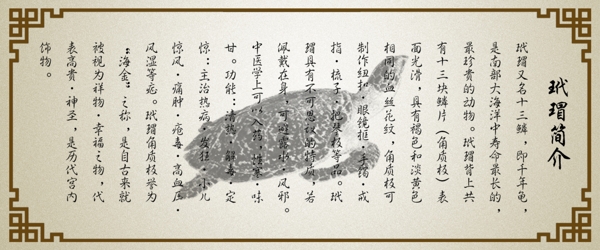 玳瑁简介
玳瑁又名十三鳞，即千年龟，
是南部大海洋中寿命最长的，
最珍贵的动物。玳瑁背上共
有十三块鳞片（角质板）表
面光滑，具有褐色和淡黄色
相间的血丝花纹，角质板可
制作纽扣·眼镜框·手镯·戒
指·梳子·把玩板等品。玳
瑁具有不可思议的特质，若
佩戴在身，可避露水·风邪。
中医学上可以入药，性寒·味
甘。功能：清热·解毒·定
惊：主治热病·发狂·小儿
惊风·痛肿·疮毒·高血压·
风湿等症。玳瑁角质板誉为
“海金”之称，是自古来就
被视为祥物·幸福之物，代
表高贵·神圣，是历代宫内
饰物。